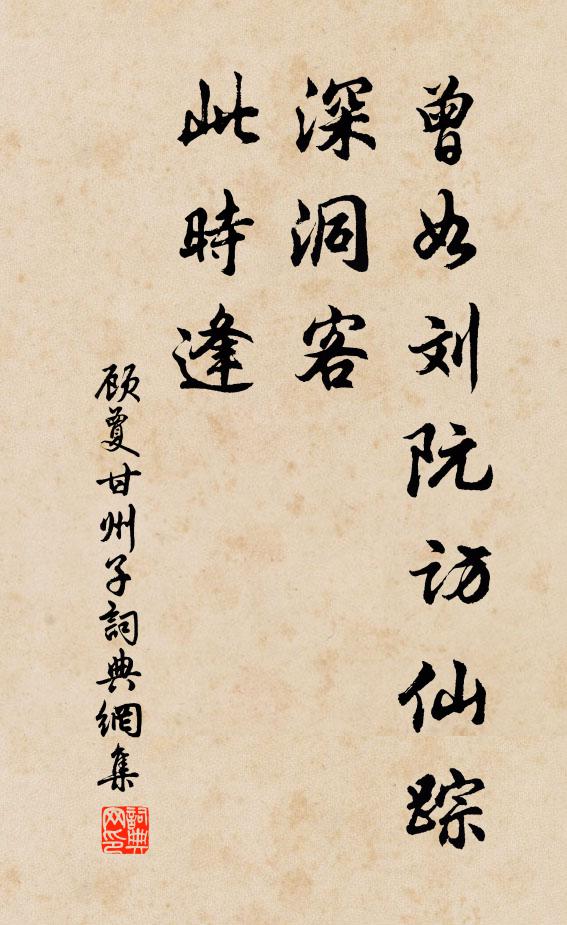 曾如刘阮访仙踪
深洞客
此時逢
顾夐甘州子詞典網集
詞典网印